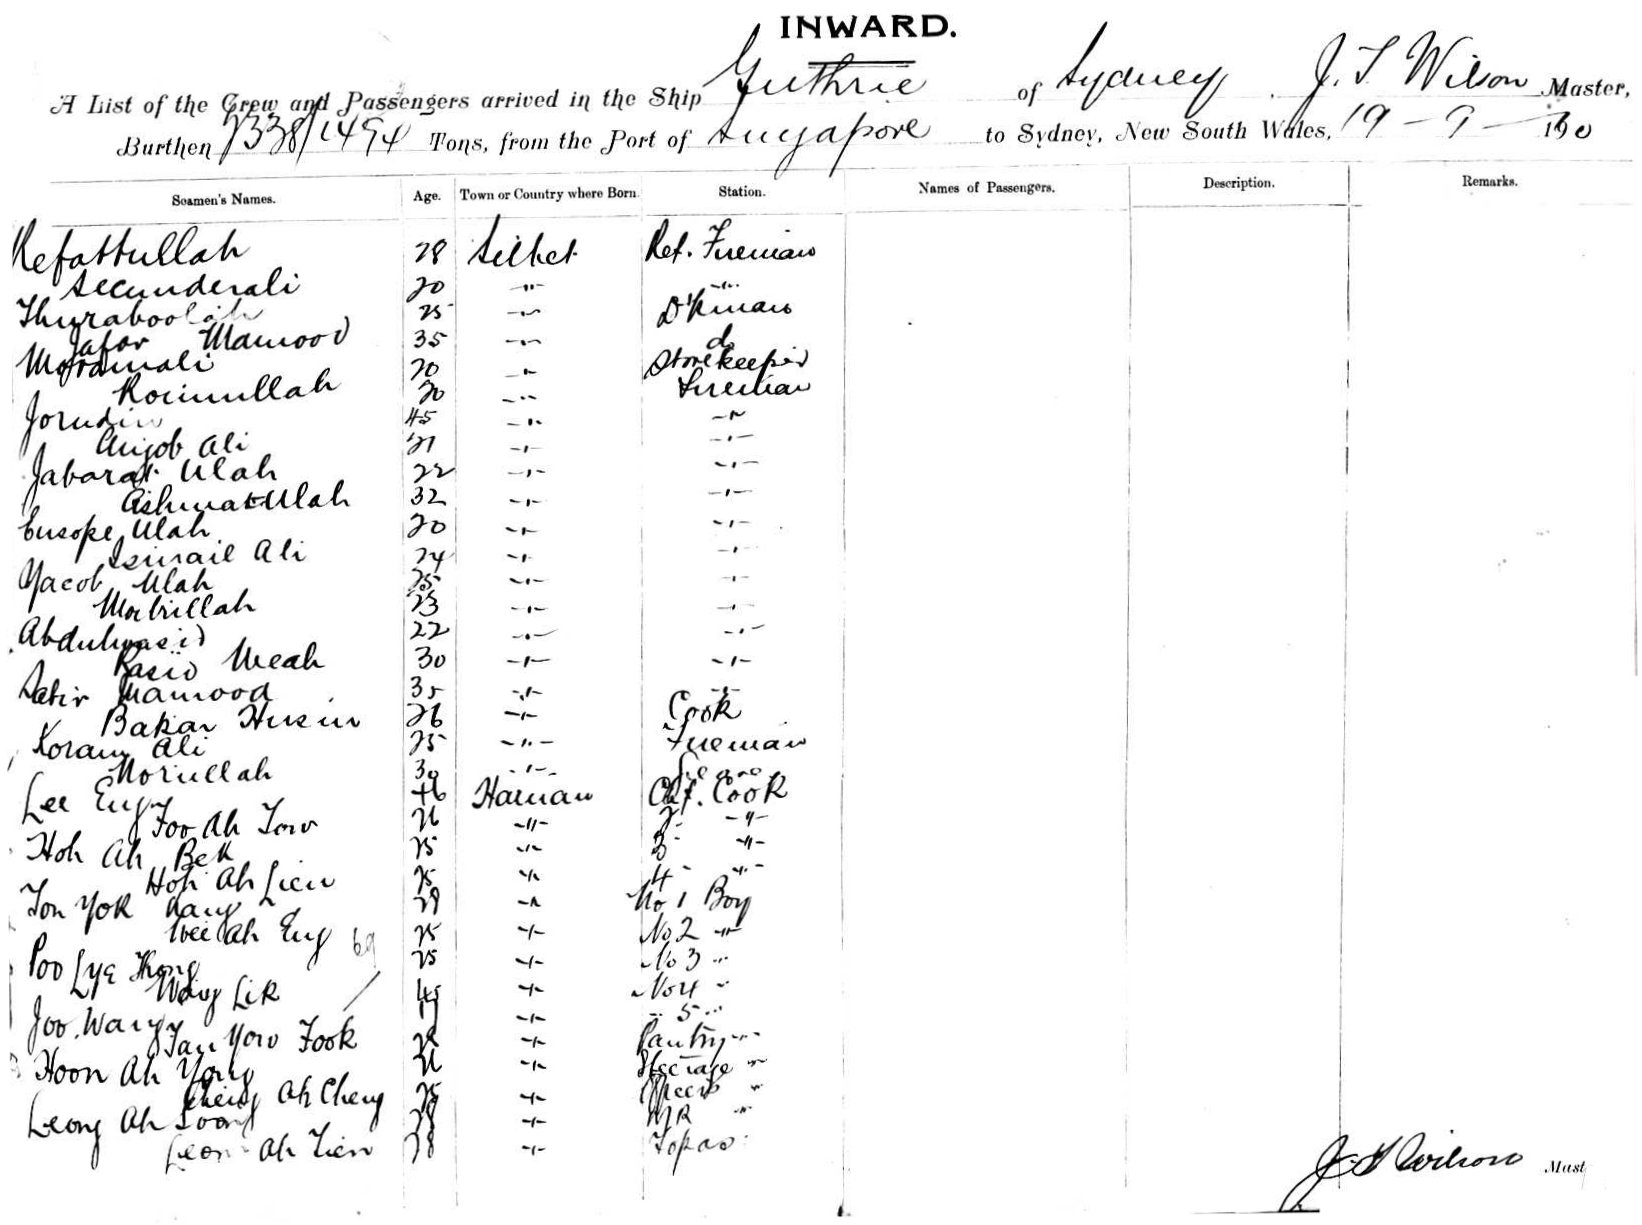 INWARD.
A List of the Crew and Passengers arrived in the Ship Guthrie of Sydney, J. T. Wilson Master,
Burthen 2338/1494 Tons, from the Port of Singapore to Sydney, New South Wales, 19 - 9 - 190
Seamen's Names. Age. Town or Country where Born. Station. Names of Passengers. Description. Remarks.
Refattullah 28 Silhet Ref. Fireman
Secunderali 20 -"- -"-
Thuraboolah 25 -"- D'kman
Jafar Mamood 35 -"- do
Mojamali 20 -"- Storekeeper
Roimullah 20 -"- Fireman
Jorudin 45 -"- -"-
Ali 21 -"- -"-
Jabarat Ulah 22 -"- -"-
Ashmat Ulah 32 -"- -"-
Eusope Ulah 20 -"- -"-
Ismail Ali 24 -"- -"-
Yacob Ulah 25 -"- -"-
Mabrillah 23 -"- -"-
Abdulwasid 22 -"- -"-
Rasid Meah 30 -"- -"-
Satir Mamood 35 -"- -"-
Bakar Husin 26 -"- Cook
Koram Ali 25 -"- Fireman
Norullah 30 -"-
Lee Eng 46 Hainan Chf. Cook
Foo Ah Tow 26 -"- 2 -"-
Hoh Ah Bek 25 -"- 3 -"-
Hoh Ah Lien 25 -"- 4 -"-
Ton Yok Nang 29 -"- No 1 Boy
Wee Ah Eng 69 25 -"- No 2 -"-
Poo Lye Thong 25 -"- No 3 "
Wong Lik 45 -"- No 4 "
Joo Wang 19 -"- " 5 "
Tan Yow Fook 28 -"- Pantry -"-
Hoon Ah Yong 26 -"- Steerage "
Cheng Ah Cheng 25 -"- Officers "
Leong Ah Soong 28 -"- "
Leong Ah Tien 28 -"- Topas
J. T. Wilson Mast